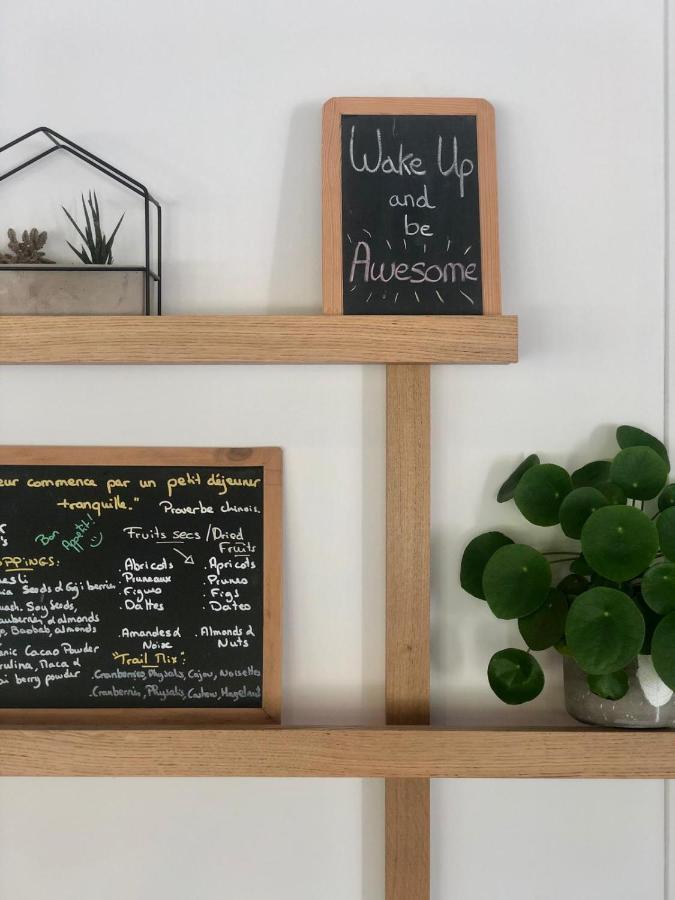 Wake Up
and
be
Awesome
commence par un petit déjeuner
tranquille."
Proverbe chinois.
Bon
Appetit!
Fruits secs / Dried
Fruits
. Abricots
. Pruneaux
. Figues
. Dattes
. Apricots
. Prunes
. Figs
. Dates
. Amandes &
Noix
. Almonds &
Nuts
"Trail Mix":
. Cranberries, Physalis, Cajou, Noisettes
. Cranberries, Physalis, Cashew, Hazelnut
Seeds & Goji berries
Soy Seeds,
& almonds
Baobab, almonds
Cacao Powder
Maca &
berry powder